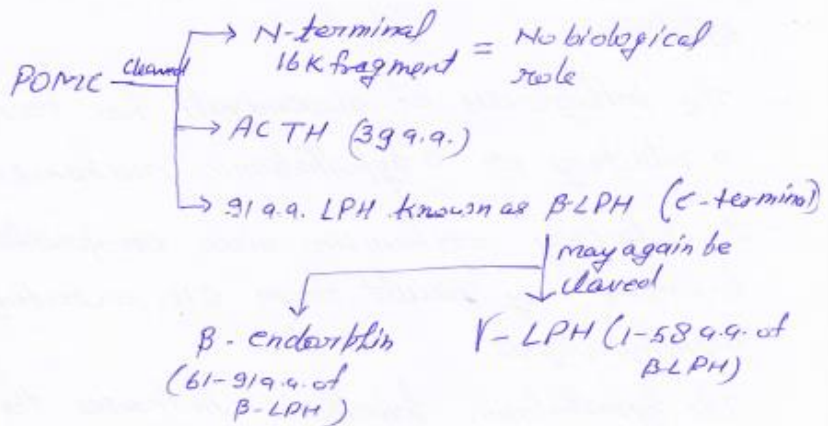 POMC cleaved → N-terminal
16K fragment = No biological
role
→ ACTH (39 a.a.)
→ 91 a.a. LPH known as β-LPH (C-terminal)
may again be
claved
β-endorphin
(61-91 a.a. of
β-LPH)
γ-LPH (1-58 a.a. of
βLPH)